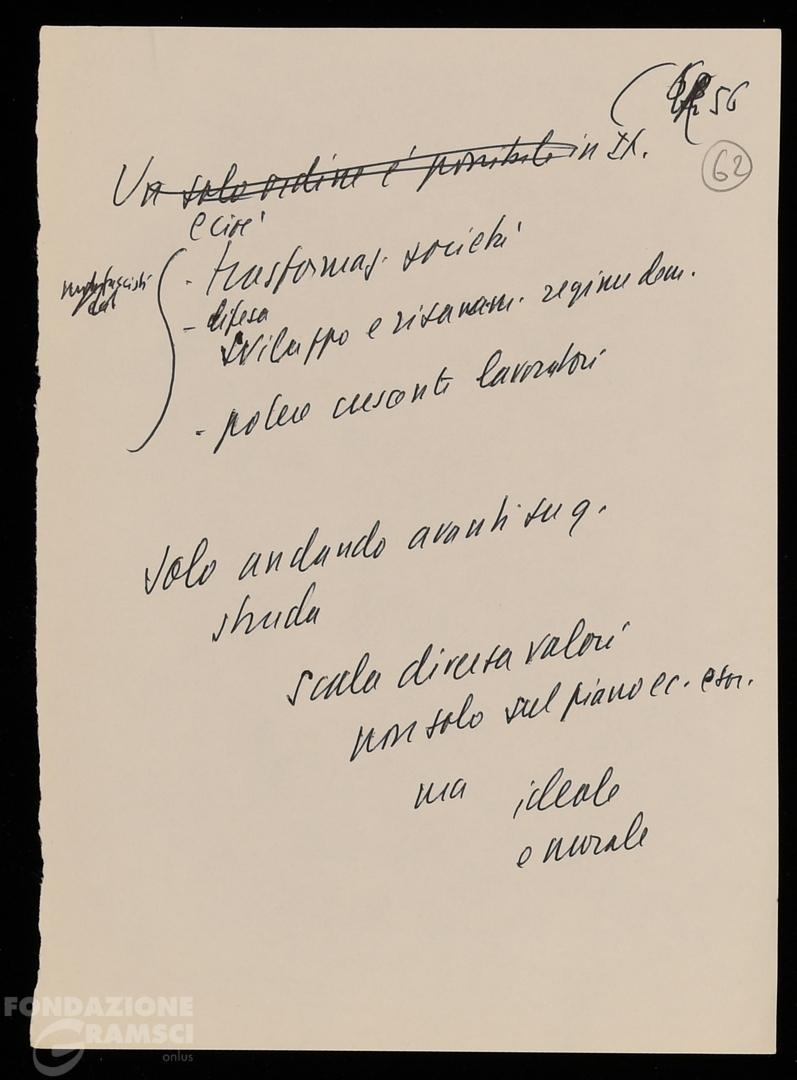 56
62
Un solo ordine è possibile in It.
e cioè
- trasformaz. società
- difesa
sviluppo e risanam. regime dem.
- potere crescente lavoratori
solo andando avanti su q.
strada
scala diversa valori
non solo sul piano ec. e soc.
ma ideale
e morale
FONDAZIONE
GRAMSCI
onlus